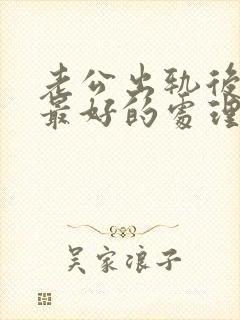 老公出轨後
最好的處理
吴家浪子